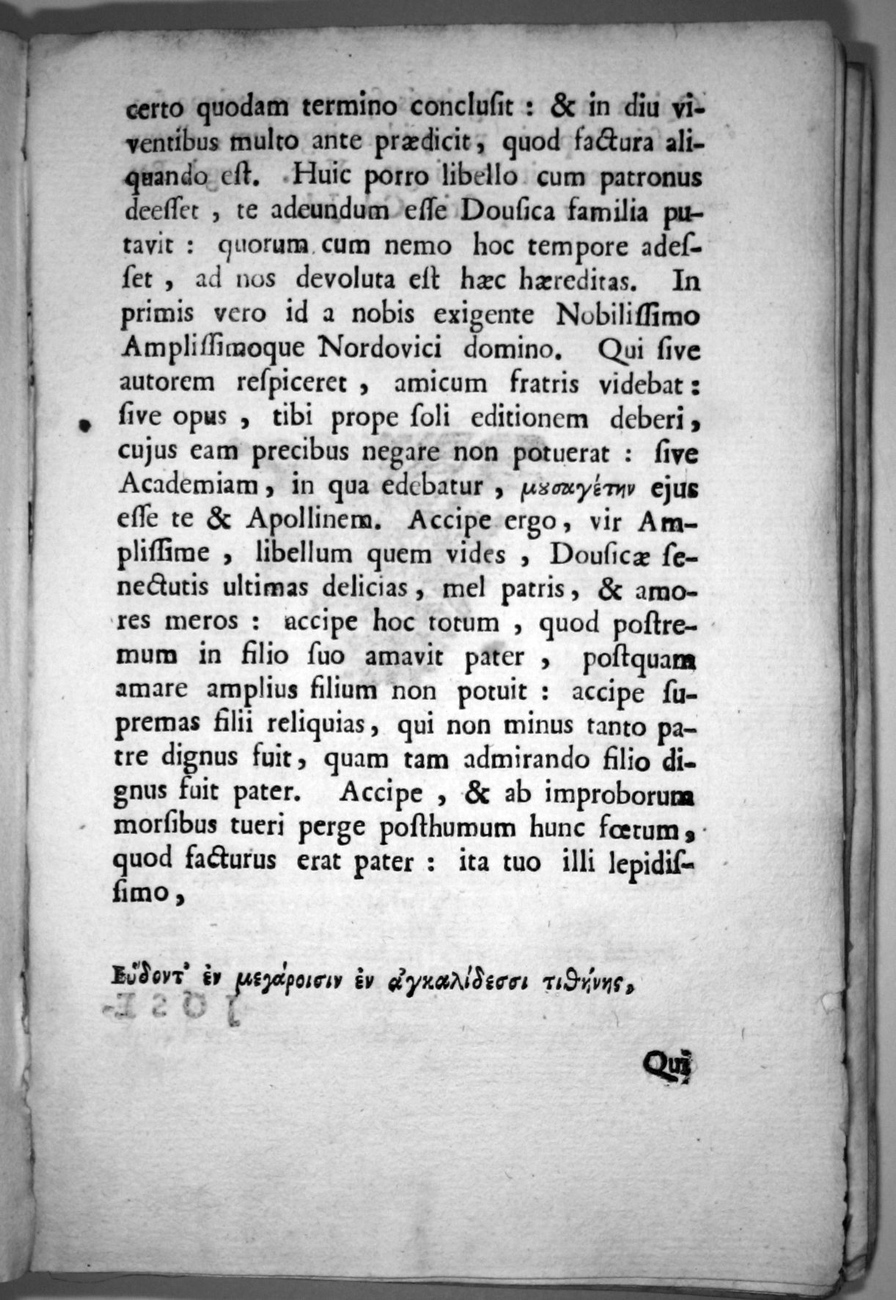 certo quodam termino concluſit : & in diu vi-
ventibus multo ante prædicit, quod factura ali-
quando eſt. Huic porro libello cum patronus
deeſſet , te adeundum eſſe Douſica familia pu-
tavit : quorum cum nemo hoc tempore adeſ-
ſet , ad nos devoluta eſt hæc hæreditas. In
primis vero id a nobis exigente Nobiliſſimo
Ampliſſimoque Nordovici domino. Qui ſive
autorem reſpiceret , amicum fratris videbat :
ſive opus , tibi prope ſoli editionem deberi,
cujus eam precibus negare non potuerat : ſive
Academiam, in qua edebatur , μȣσαγέτην ejus
eſſe te & Apollinem. Accipe ergo, vir Am-
pliſſime , libellum quem vides , Douſicæ ſe-
nectutis ultimas delicias, mel patris, & amo-
res meros : accipe hoc totum , quod poſtre-
mum in filio ſuo amavit pater , poſtquam
amare amplius filium non potuit : accipe ſu-
premas filii reliquias, qui non minus tanto pa-
tre dignus fuit, quam tam admirando filio di-
gnus fuit pater. Accipe , & ab improborum
morſibus tueri perge poſthumum hunc fœtum,
quod facturus erat pater : ita tuo illi lepidiſ-
ſimo,
Εὕδοντ' ἐν μεγάροισιν ἐν ἀγκαλίδεσσι τιθήνης,
Qui